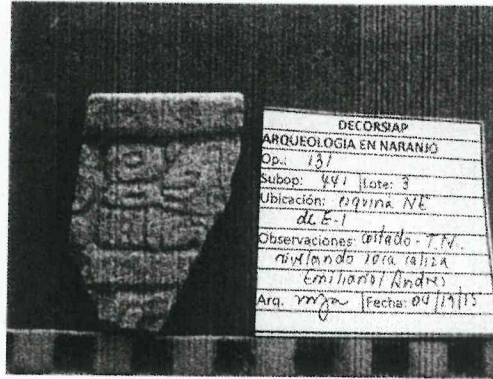 DECORSIAP
ARQUEOLOGIA EN NARANJO
Op.: 131
Subop: 441 Lote: 3
Ubicación: esquina NE
de E-1
Observaciones: costado - T.N.
nivelando roca caliza
Emiliano / Andres
Arq. Fecha: 04/19/15